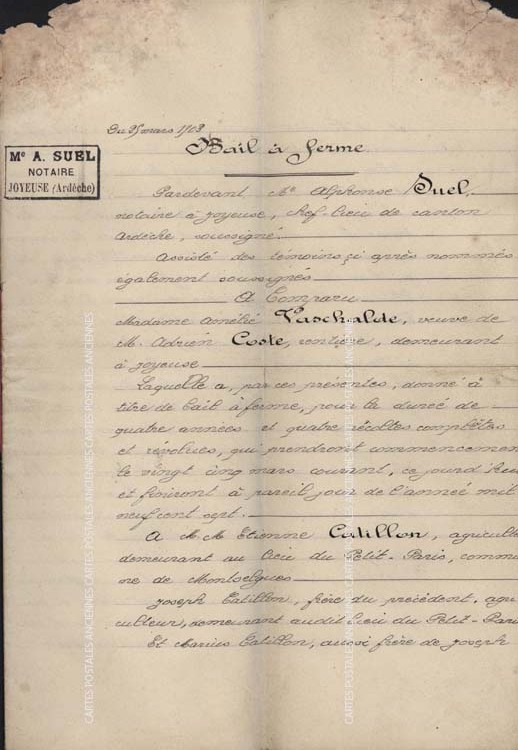 Du 25 mars 1903
Bail à ferme
Me A. SUEL
NOTAIRE
JOYEUSE (Ardèche)
Pardevant Me Alphonse Suel,
notaire à Joyeuse, chef-lieu de canton
Ardèche, soussigné
Assisté des témoins ci après nommés
également soussignés
A Comparu
Madame Amélie Paschalde, veuve de
M. Adrien Coste, rentière, demeurant
à Joyeuse
Laquelle a, par ces présentes, donné à
titre de bail à ferme, pour la durée de
quatre années et quatre récoltes complètes
et révolues, qui prendront commencemen
le vingt cinq mars courant, ce jourd'hui
et finiront à pareil jour de l'année mil
neuf cent sept.
A M.M. Etienne Catillon, agricult
demeurant au lieu du Petit-Paris, commu
ne de Montselgues
Joseph Catillon, frère du précédent, agri
culteur, demeurant audit lieu du Petit-Paris
Et Marius Catillon, aussi frère de Joseph
CARTES POSTALES ANCIENNES CARTES POSTALES ANCIENNES CARTES POSTALES ANCIENNES
CARTES POSTALES ANCIENNES CARTES POSTALES ANCIENNES CARTES POSTALES ANCIENNES